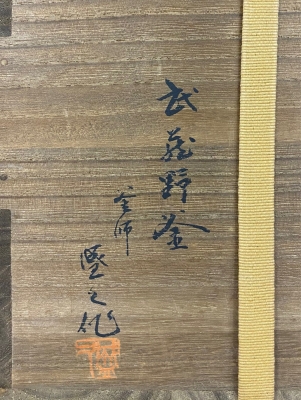 武蔵野釜
釜師
堅之作